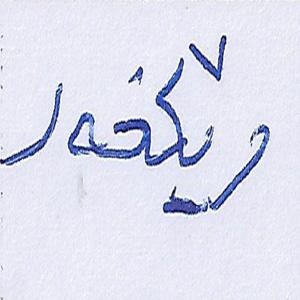 وێکخەر